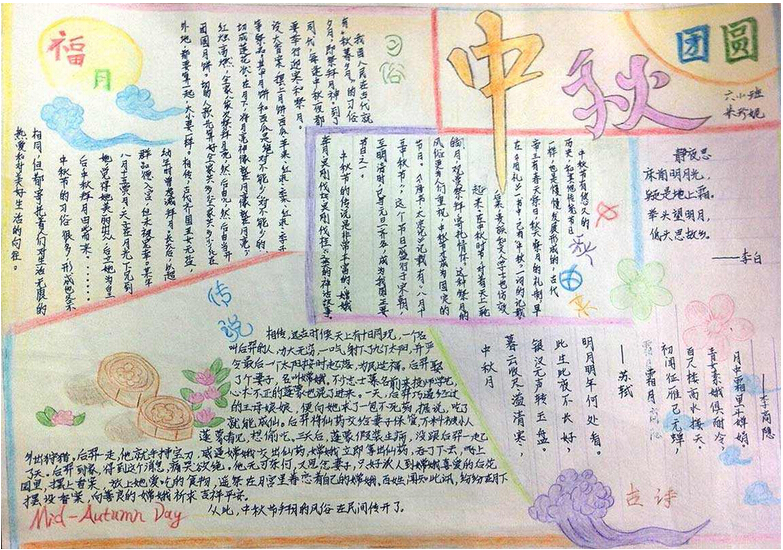 中秋
团圆
六小班
福
月
习俗
我国人民在古代就
有"秋暮夕月"的习俗
夕月,即祭拜月神。到了
周代,每逢中秋夜都
要举行迎寒和祭月。
设大香案,摆上月饼、西瓜、苹果、红枣、
等祭品,其中月饼和西瓜是绝对不能少的
切成莲花状。在月下,将月亮神像放在月亮
红烛高燃,全家人依次拜祭月亮,然后由当家
团圆月饼。
相传,古代齐国丑女无盐,
幼年时曾虔诚拜月,长大后,以超
群品德入宫,但未被宠幸。某年
八月十五赏月,天子在月光下见到
她,觉得她美丽出众,后立她为皇
后,中秋拜月由此而来……
中秋节的习俗很多,形式也各不
相同,但都寄托着人们对生活无限的
热爱和对美好生活的向往。
中秋节有悠久的
历史,和其他传统节日
一样,也是慢慢发展形成的,古代
帝王有春天祭日,秋天祭月的礼制,早
在《周礼》一书中,已有"中秋"一词的记载
后来贵族和文人学士也仿效
起来,在中秋时节,对着天上
观赏祭拜,寄托情怀,这种祭月的
风俗
中秋节才成为固定的
节日,
三中秋节",这个节日盛行于宋朝,
至明清时,已与元旦齐名,成为我国主要
节日之一。
中秋节的传说是非常丰富的,嫦娥
奔月,吴刚伐桂,
之类的神话故事
静夜思
床前明月光,
疑是地上霜。
举头望明月,
低头思故乡。
——李白
——李商隐
初闻征雁已无蝉,
百尺楼高水接天。
青女素娥俱耐冷,
月中霜里斗婵娟
中秋月
暮云收尽溢清寒,
银汉无声转玉盘。
此生此夜不长好,
明月明年何处看。
——苏轼
古诗
传说
相传,远古时候天上有十日同现,一个名
叫后羿的人,力大无穷,一口气射下九个太阳,并严
令最后一个太阳按时起落,为民造福。后羿娶
了个妻子,名叫嫦娥。不少志士慕名前来投师学艺,
心术不正的蓬蒙也混了进来。一天,后羿巧遇经过
的王母娘娘,便向她求了一包不死药。据说,吃了
就能成仙。后羿将仙药交给妻子保管,不料被小人
蓬蒙看见,想偷吃。三天后,蓬蒙假装生病,没跟后羿一起
外出狩猎。后羿走,他就手持宝刀,威逼嫦娥交出仙药,嫦娥立即拿出仙药,吞了下去,
了天。后羿到家,得到这个消息,痛哭欲绝,他无可奈何,又思念妻子,只好派人到嫦娥喜爱的后花
园里,摆上香案,放上她爱吃的食物,遥祭在月宫里眷恋着自己的嫦娥,百姓闻知此讯,纷纷在月下
摆设香案,向善良的嫦娥祈求吉祥平安。
从此,中秋节拜月的风俗在民间传开了。
Mid-Autumn Day